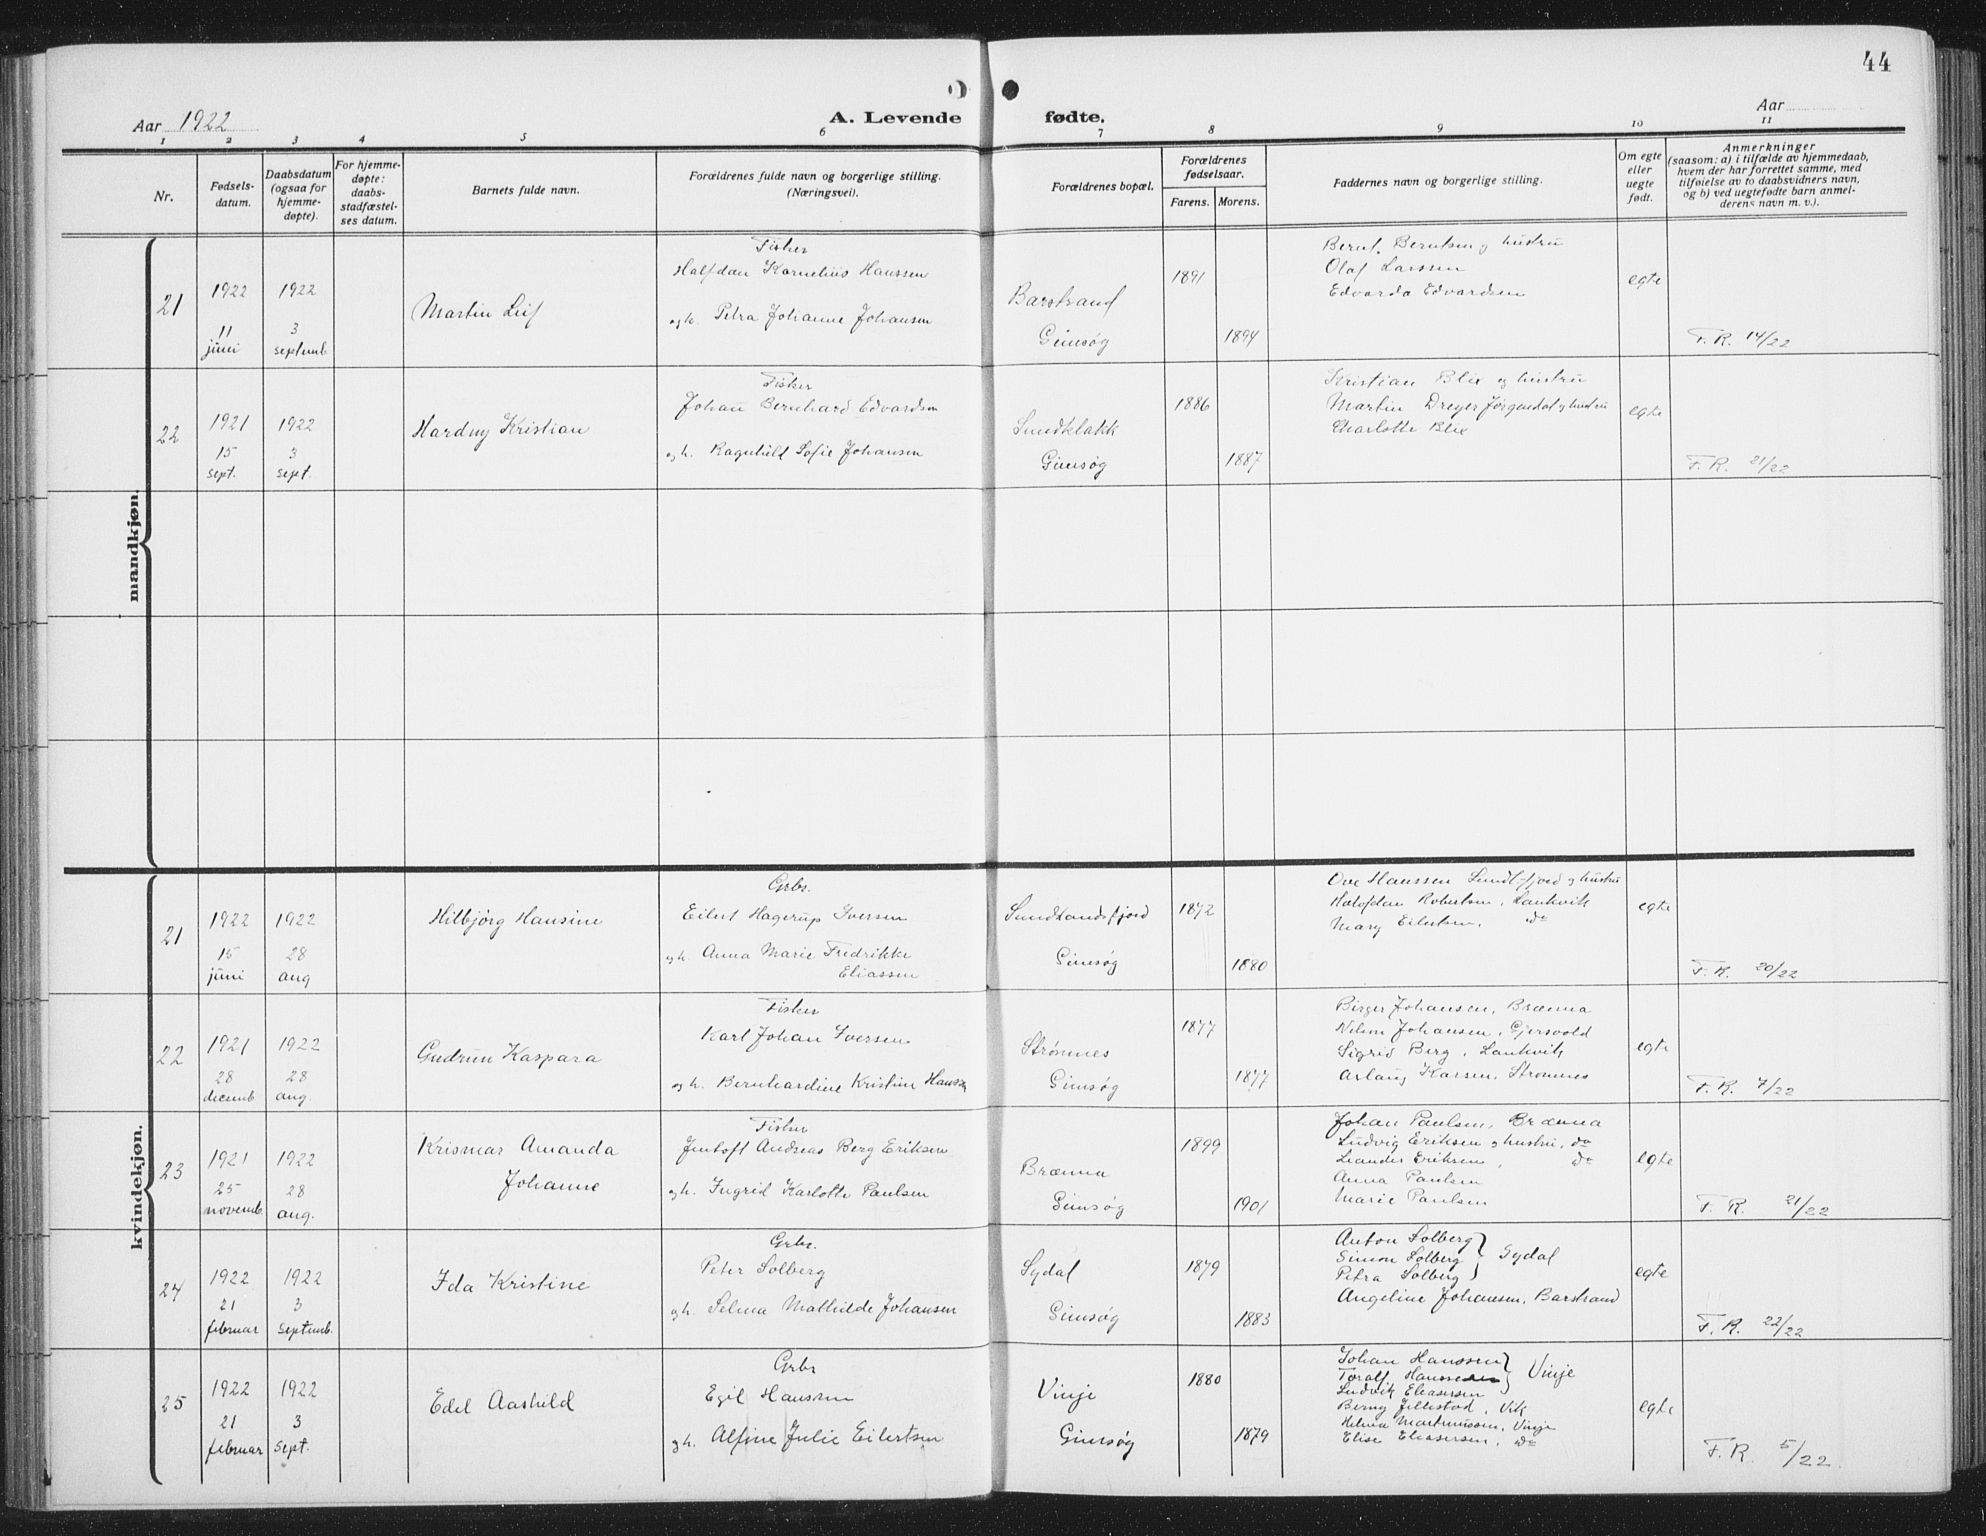 44
Aar 1922
A. Levende fødte.
Aar
1 2 3 4 5 6 7 8 9 10 11
Nr.
Fødsels-
datum.
Daabsdatum
(ogsaa for
hjemme-
døpte).
For hjemme-
døpte:
daabs-
stadfæstel-
ses datum.
Barnets fulde navn.
Forældrenes fulde navn og borgerlige stilling.
(Næringsvei).
Forældrenes bopæl.
Forældrenes
fødselsaar.
Farens. Morens.
Faddernes navn og borgerlige stilling.
Om egte
eller
uegte
født.
Anmerkninger
(saasom: a) i tilfælde av hjemmedaab,
hvem der har forrettet samme, med
tilføielse av to daabsvidners navn,
og b) ved uegtefødte barn anmel-
derens navn m. v.).
mandkjøn.
21
1922
11
juni
1922
3
septemb.
Martin Leif
Fisker
Halfdan Kornelius Hanssen
og h. Petra Johanne Johansen
Barstrand
Gimsøy
1891
1894
Bernt Berntsen og hustru
Olaf Larssen
Edvarda Edvardsen
egte
F. R. 14/22
22
1921
15
sept.
1922
3
sept.
Hardny Kristian
Fisker
Johan Bernhard Edvardsen
og h. Ragnhild Sofie Johansen
Sundklakk
Gimsøy
1886
1887
Kristian Blix og hustru
Martin Dreyer Jørgendal og hustru
Charlotte Blix
egte
F. R. 21/22
kvindekjøn.
21
1922
15
juni
1922
28
aug
Hilbjørg Hansine
Grbr.
Eilert Hagerup Iversen
og h. Anna Marie Fredrikke
Eliassen
Sundlandsfjord
Gimsøy
1872
1880
Ove Hanssen Sundl-fjord og hustru
Halfdan Robertsen, Lankvik
Mary Eilertsen, do
egte
F. R. 20/22
22
1921
28
decemb
1922
28
aug.
Gudrun Kaspara
Fisker
Karl Johan Iversen
og h. Bernhardine Kristine Hanssen
Strømnes
Gimsøy
1877
1877
Birger Johansen, Brænna
Nilson Johansen, Gjersvold
Sigrid Berg, Lankvik
Arlaug Karssen, Strømnes
egte
F. R. 7/22
23
1921
25
novemb.
1922
28
aug.
Krismar Amanda
Johanne
Fisker
Jentoft Andreas Berg Eriksen
og h. Ingrid Karlotte Paulsen
Brænna
Gimsøy
1899
1901
Johan Paulsen, Brænna
Ludvig Eriksen og hustru, do
Leander Eriksen, do
Anna Paulsen
Marie Paulsen
egte
F. R. 21/22
24
1922
21
februar
1922
3
septemb.
Ida Kristine
Grbr.
Peter Solberg
og h. Selma Mathilde Johansen
Sydal
Gimsøy
1879
1883
Anton Solberg
Simon Solberg } Sydal
Petra Solberg
Angeline Johansen, Barstrand
egte
F. R. 22/22
25
1922
21
februar
1922
3
sept.
Edel Aashild
Grbr
Egil Hanssen
og h. Alfine Julie Eilertsen
Vinje
Gimsøy
1880
1879
Johan Hanssen
Toralf Hanssen } Vinje
Ludvik Eliasersen
Berny Jillestad, Vik
Helma Martinussen, Vinje
Elise Eliasersen, do
egte
F. R. 5/22.